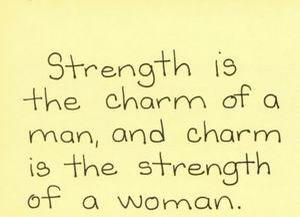 Strength is
the charm of a
man, and charm
is the strength
of a woman.